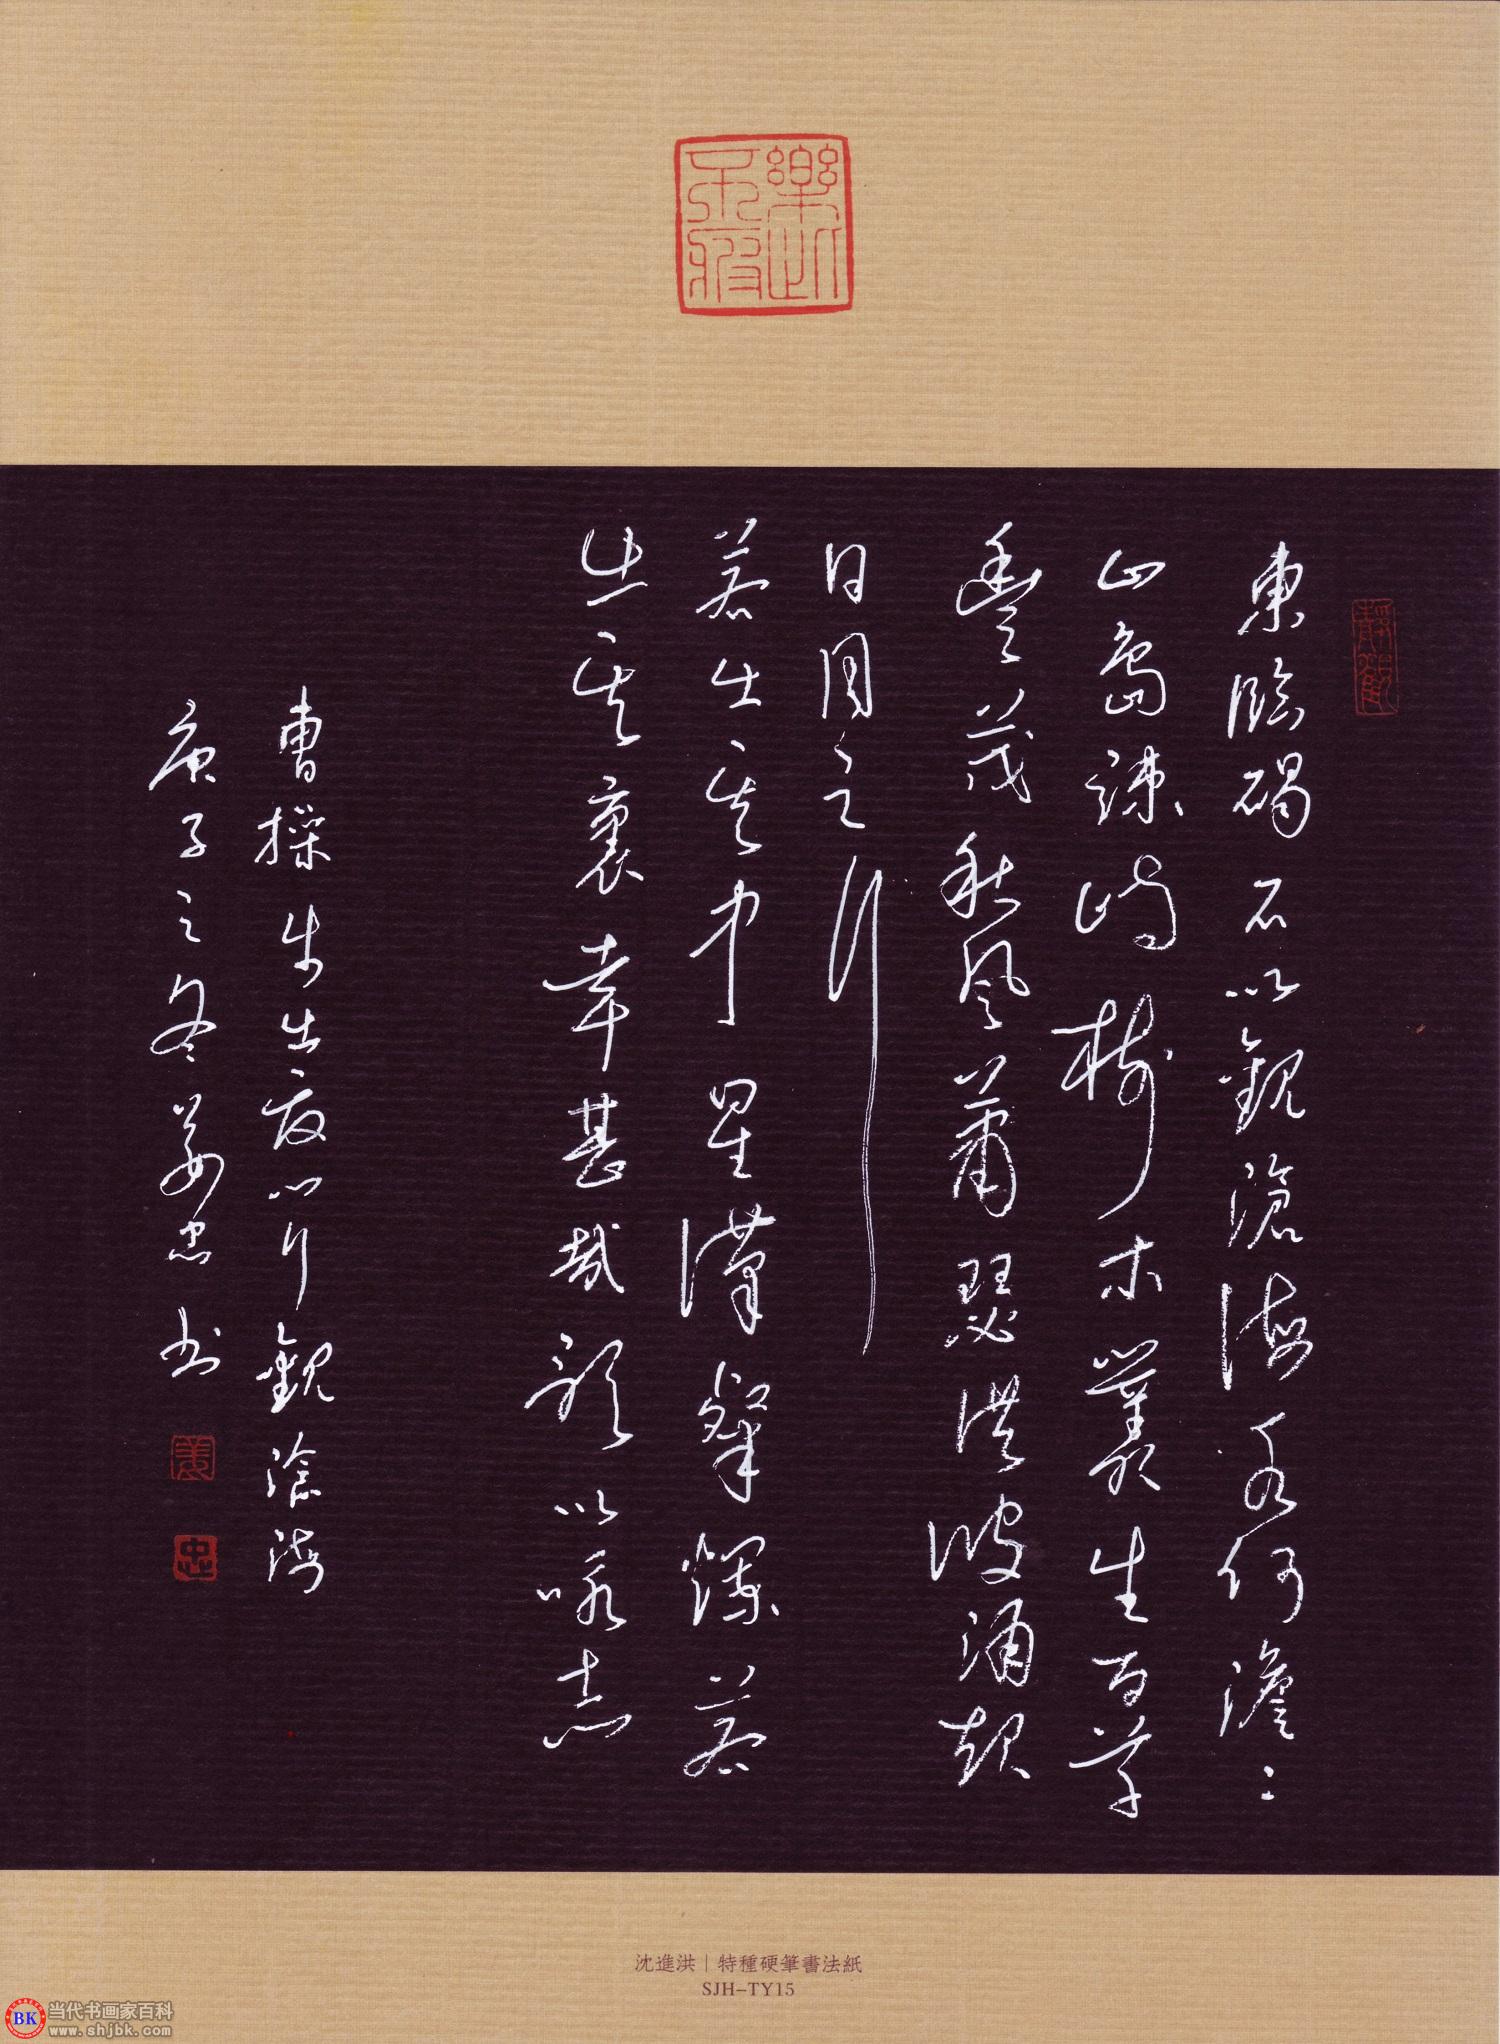 樂此不疲
靜觀
東臨碣石以觀滄海水何澹〻
山島竦峙樹木叢生百草
豐茂秋風蕭瑟洪波涌起
日月之行
若出其中星漢粲爛若
出其裏幸甚哉歌以詠志
曹操步出夏門行觀滄海
庚子之冬姜忠书
姜
忠
沈進洪｜特種硬筆書法紙
SJH-TY15
BK 当代书画家百科
www.shjbk.com